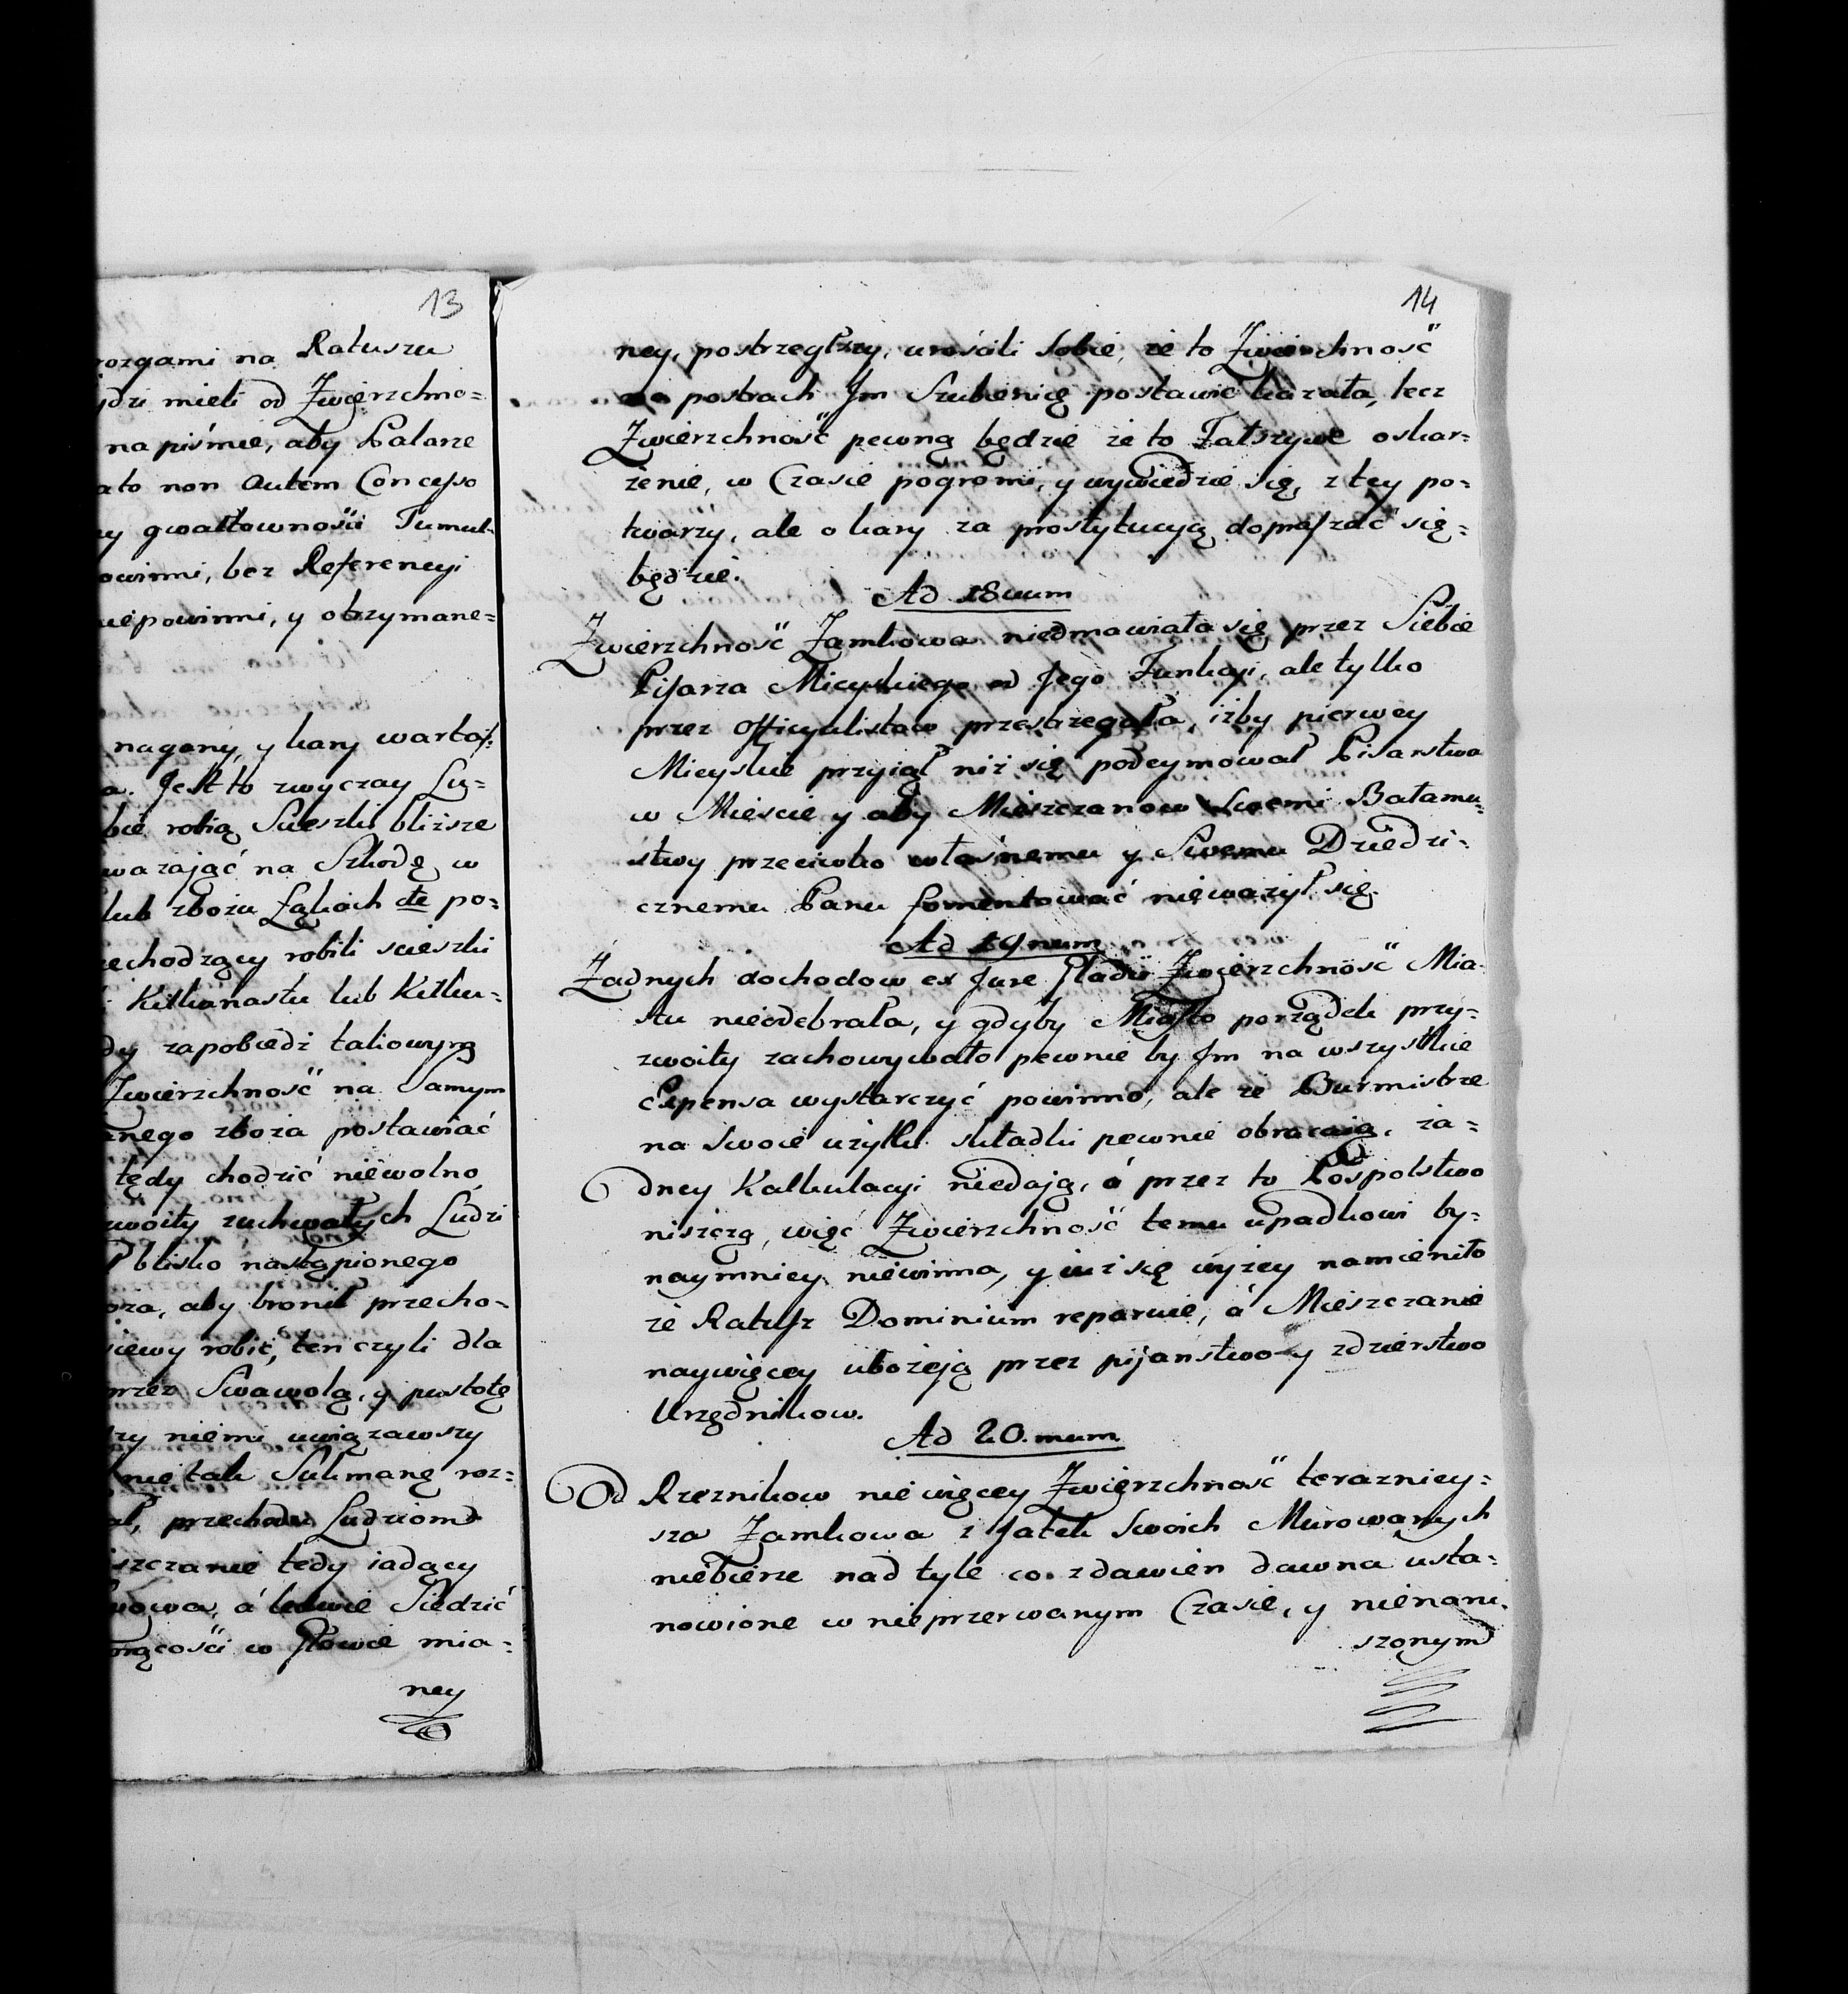 13
rozgami na Ratuszu
ydzi mieli od Zwierzchno=
na piśmie, aby Palarze
ato non autem Concesso
y gwałtowności Tumul=
owinni, bez Referencyi
niepowinni, y otrzymane=
nagany, y kary warta
a. Jest to zwyczay Lu=
bie robią Scieszki bliższe
wazaiąć na Szkodę w
lub zbożu Łąkach etc po=
echodzący robili scieszki
Kilkanastu lub Kilku=
dy zapobiedz takowym
Zwierzchność na Samym
anego zboża postawiać
tędy chodzić niewolno
zwoity zuchwałych Ludzi
blisko nastąpionego
oza, aby bronił przecho=
siewy robić, ten czyli dla
przez Swawolą, y pustotę
zy niemi uwiązawszy
nie tak Sukmanę roz=
ał, przechodu Ludziom
szczanie tędy iadący
owa, á ledwie Siedzić
mącości w Głowie mia=
ney
14
ney, postrzegłszy, urościli sobie, że to Zwierchność
na postrach Jm Szubienicę postawić kazała, lecz
Zwierzchność pewną będzie że to Fałszywe oskar=
żenie, w Czasie pogromi, y wywiedzie się, z tey po=
twarzy, ale o kary za prostytucyą dopraszać się=
będzie.
Ad 18vum
Zwierzchność Zamkowa nieodmawiała się przez Siebie
Pisarza Mieyskiego od Jego Funkcyi, ale tylko
przez Officyalistow przestrzegała, iżby pierwey
Mieyskie przyiął niż się podeymował Pisarstwa
w Mieście y aby Mieszczanow Swemi Bałamu=
stwy przeciwko własnemu y Swemu Dziedzi=
cznemu Panu fomentować nieważył się.
Ad 19num
Żadnych dochodow ex Jure Gladii Zwierzchność Mia=
stu nieodebrała, y gdyby Miasto porządek przy=
zwoity zachowywało pewnie by Jm na wszystkie
Expensa wystarczyć powinno, ale że Burmistrze
na swoie użytki składki pewnie obracaią, ża=
dney Kalkulacyi niedają, á przez to Pospolstwo
niszczą, więc Zwierzchność temu upadkowi by=
naymniey niewinna, y iuż się wyżey namieniło
że Ratusz Dominium reparuie, á Mieszczanie
naywięcey ubożeją przez pijaństwo y zdzierstwo
Urzędnikow.
Ad 20.mum
Od Rzeznikow niewięcey Zwierzchność terazniey=
sza Zamkowa z Jatek Swoich Murowanych
niebierze nad tyle co zdawien dawna usta=
nowione w nieprzerwanym Czasie, y nienaru=
szonym